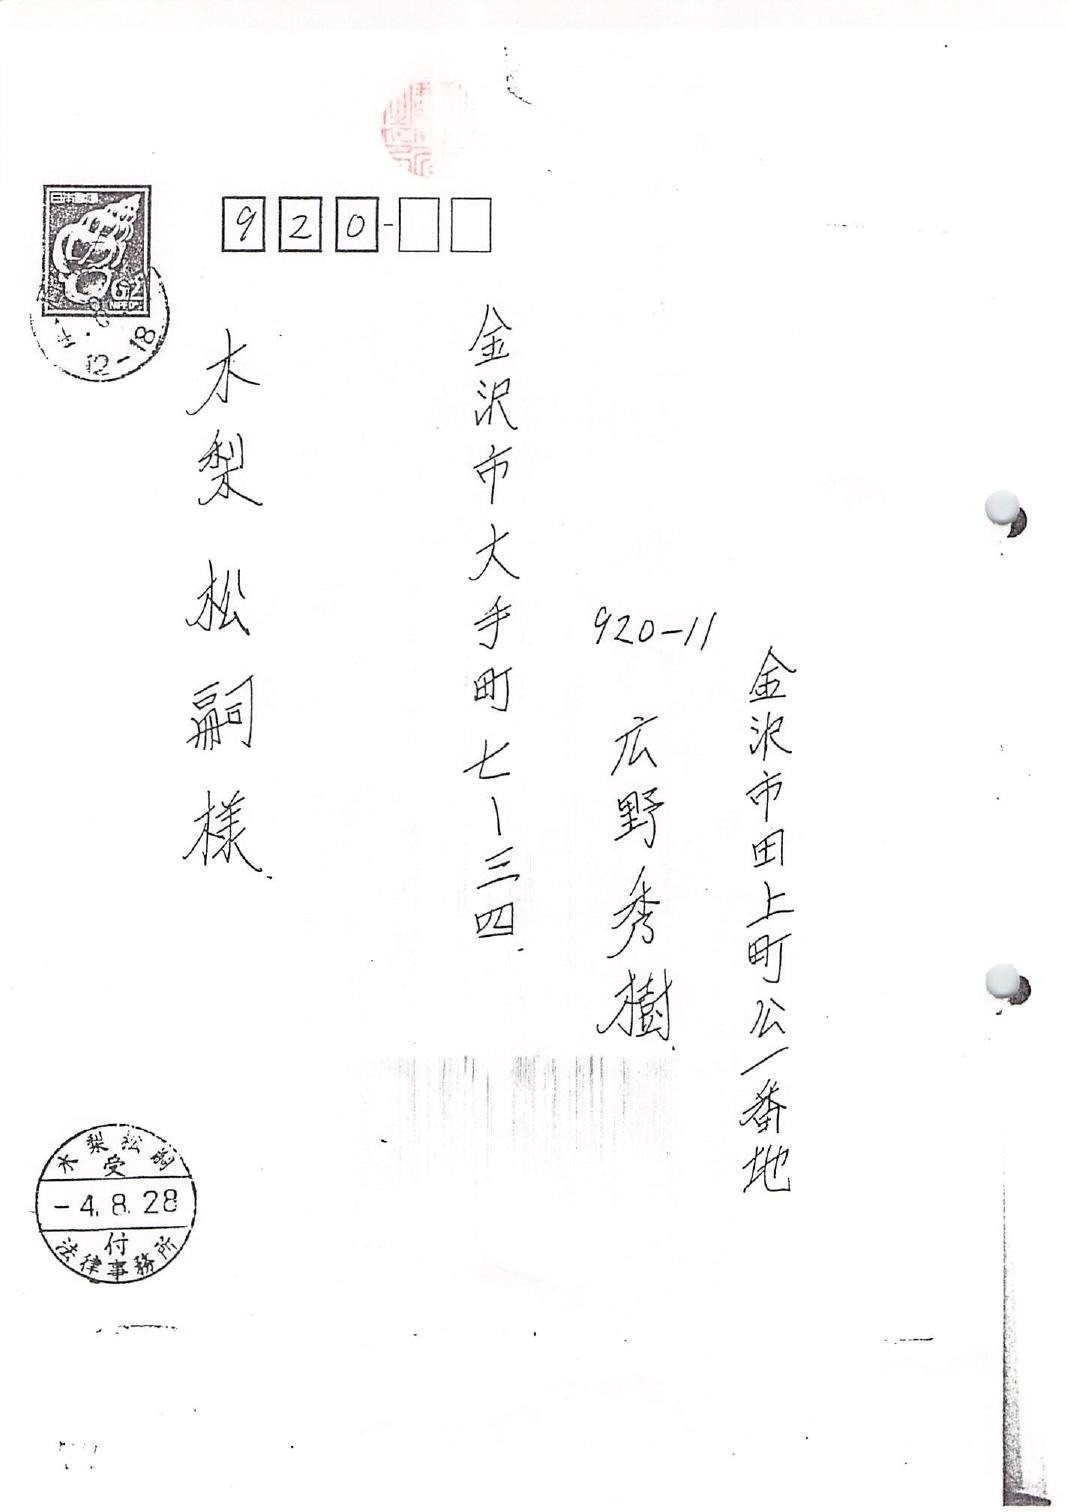 日本郵便
62
NIPPON
12-18
920-
金沢市大手町七ー三四
木梨松嗣様
920-11
金沢市田上町公一番地
広野秀樹
木梨松嗣
受
-4.8.28
付
法律事務所